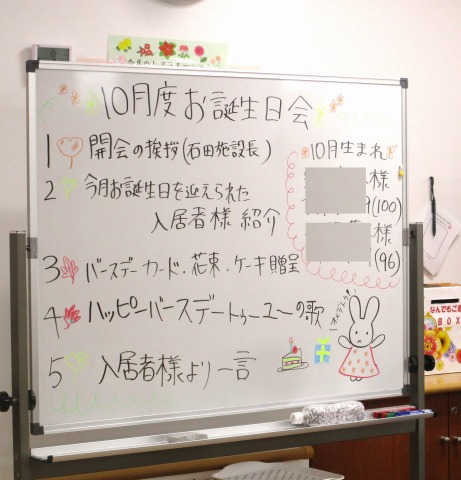 10月度お誕生日会
1 開会の挨拶(石田施設長)
2 今月お誕生日を迎えられた
入居者様 紹介
3 バースデーカード・花束・ケーキ贈呈
4 ハッピーバースデートゥーユーの歌
5 入居者様より一言
10月生まれ
様
(100)
様
(96)
おめでとう
なんでもご意
BOX